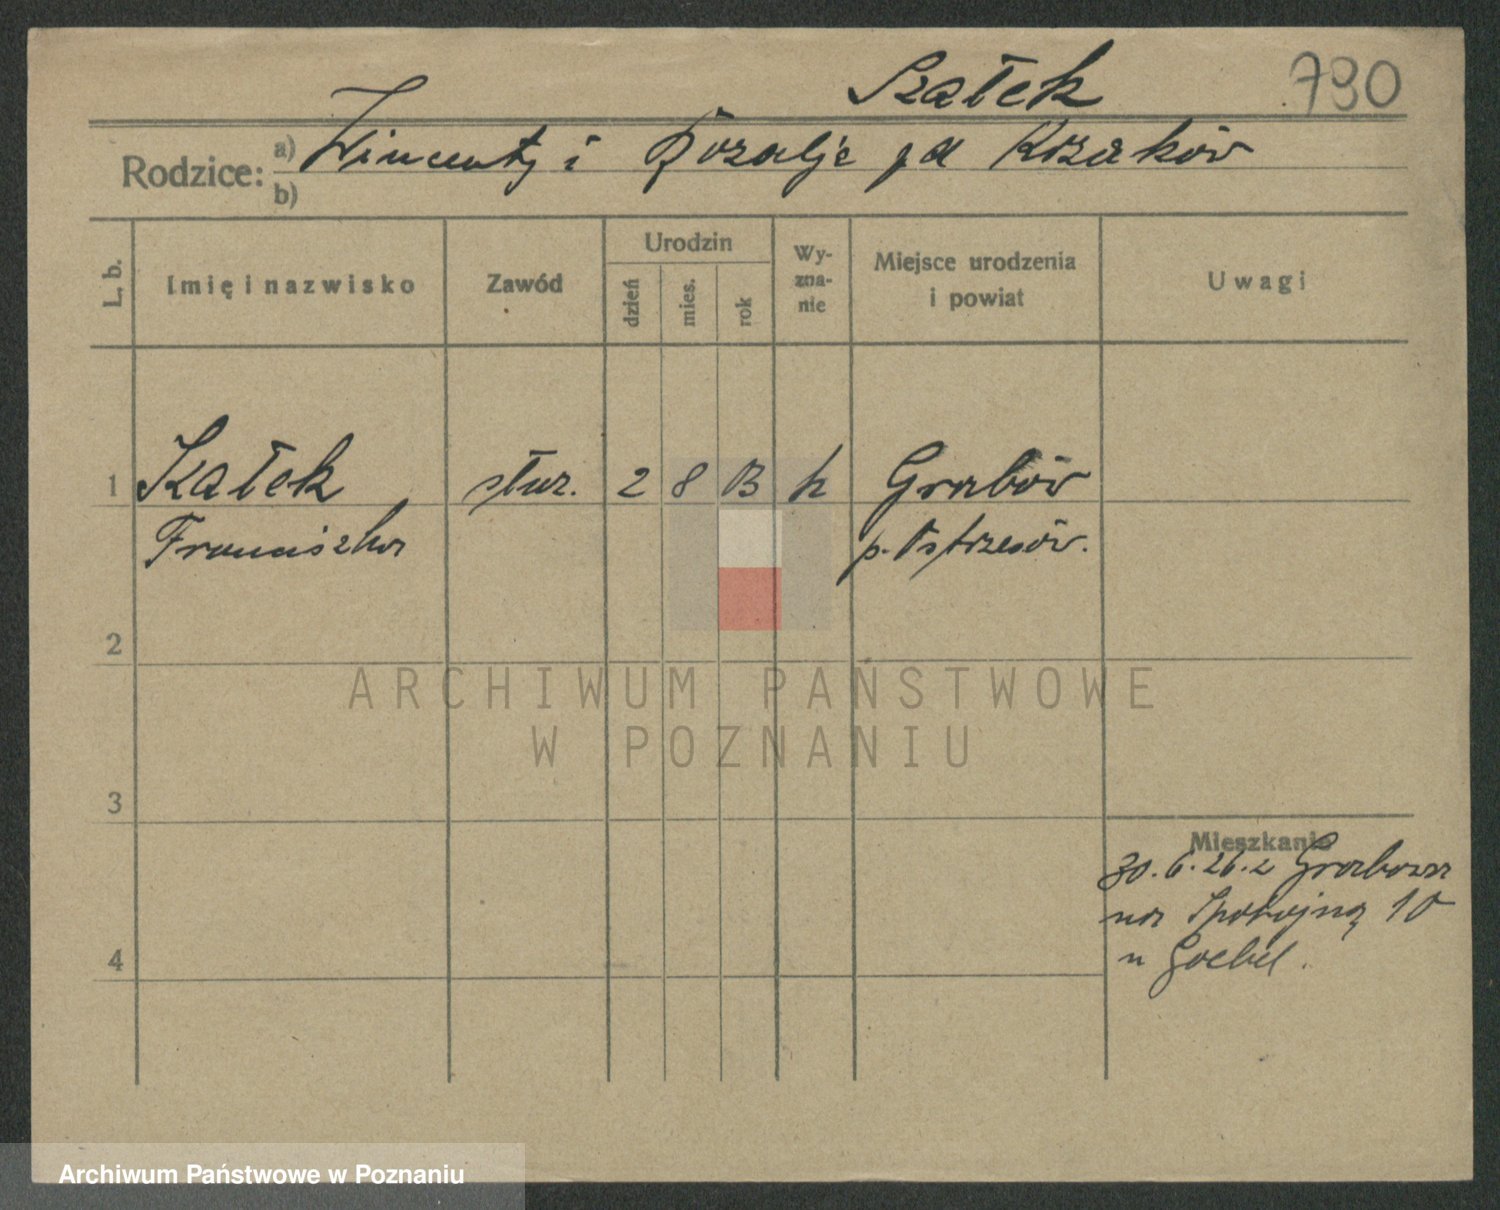 Szałek 790
Rodzice: a) Wincenty i Rozalja
b)
L. b. Imię i nazwisko Zawód Urodzin dzień mies. rok Wy-zna-nie Miejsce urodzenia i powiat Uwagi
1 Szałek służ. 2 8 k Grabów
Franciszka p. Ostrzeszów.
2
ARCHIWUM PAŃSTWOWE
W POZNANIU
3
Mieszkanie
30.6.26. z Grabowa
na Spokojną 10
4
u Goebel.
Archiwum Państwowe w Poznaniu